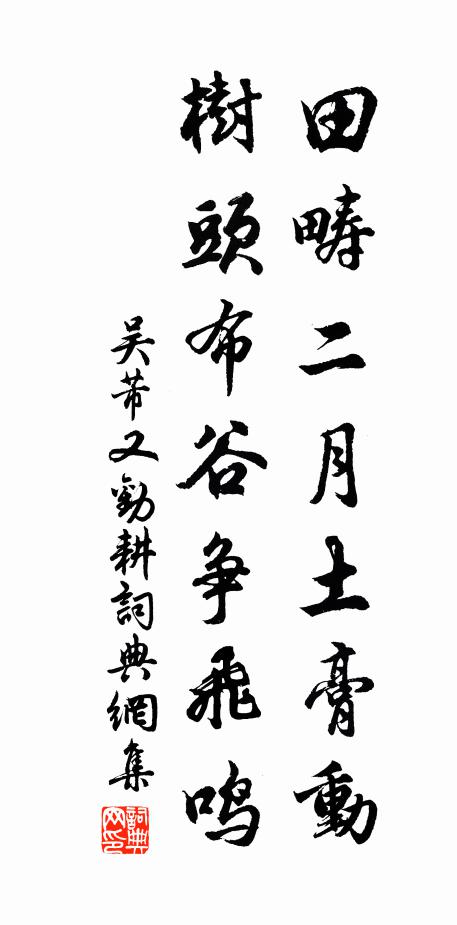 田疇二月土膏動
樹頭布谷争飛鸣
吴芾又勸耕詞典網集
詞典网印